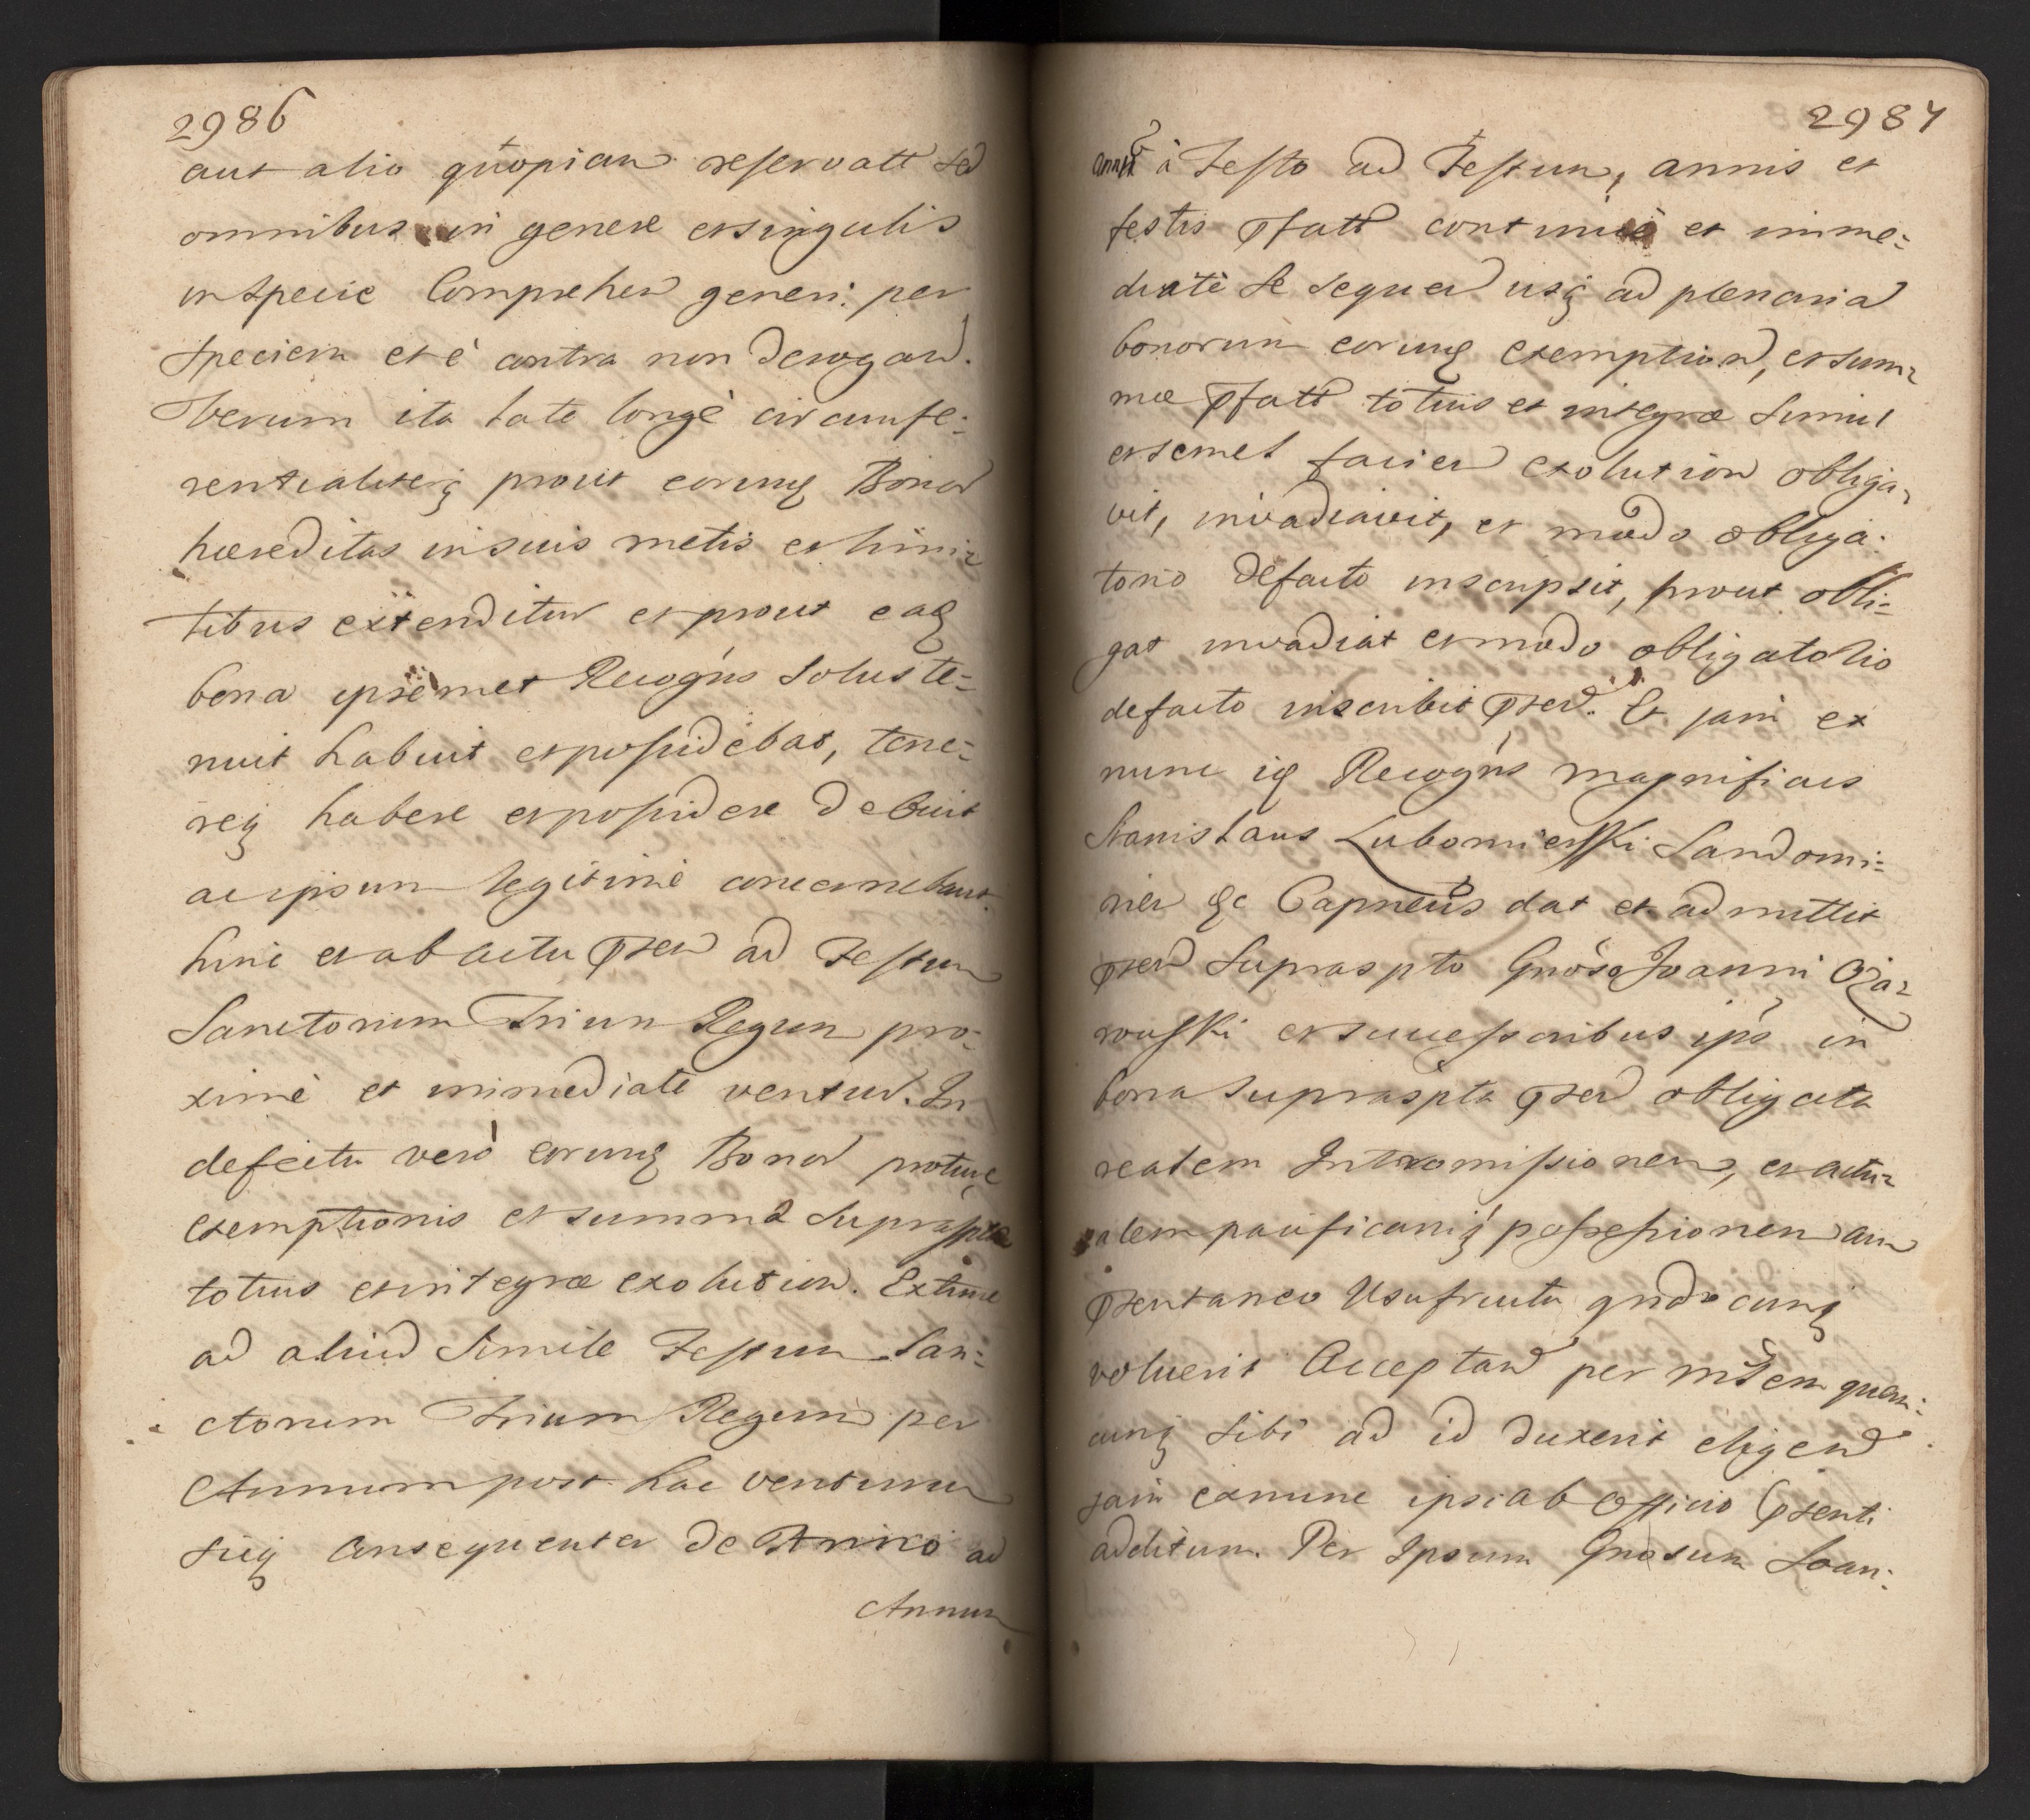 2986
aut alio quopiam reservatt sed
omnibus in genere et singulis
in specie Comprehen generi per
speciem et è contra non derogan.
Verum ita late longè circumfe:
rentialiterq prout eorunq Bonor
hæreditas in suis metis et limi=
tibus extenditur et prout eaq
bona ipsemet Recogns Solus te=
nuit habuit et possidebat, tene=
req habere et possidere debuit
ac ipsum legitimè concernebant.
hinc et ab actu pnti ad Festum
Sanctorum Trium Regum pro=
ximè et immediatè ventur. In
defectu verò eorunq Bonor protunc
exemptionis et summæ supraspta
totius et integræ exolution. Extunc
ad aliud Simile Festum San=
ctorum Trium Regum per
Annum post hac venturum
sicq Consequenter de Anno ad
Annum
2987
annū à Festo ad Festum, annis et
festis pfatt continuè et imme=
diatè se sequen usq ad plenaria
bonorum eorunq exemption, et sum=
mæ pfatt totius et integræ simul
et semel facien exolution obliga=
vit, invadiavit, et modo obliga:
torio defacto inscripsit, prout obli=
gat invadiat et modo obligatorio
defacto inscribit pnti. Et jam ex
nunc iq Recogns Magnificus
Stanislaus Lubomierski Sandomi=
rien &c Capneus dat et admittit
pnti supraspto Gnoso Joanni Oża=
rowski et successoribus ips in
bona supraspta pnti obligata
realem Intromissionem, et actu=
alem pacificamq possessionem cum
pntaneo Usufructu qndocunq
voluerit Acceptand per mstem quem=
cunq sibi ad id duxerit eligend
jam exnunc ipsi ab Officio pnti
additum. Per Ipsum Gnosum Joan: